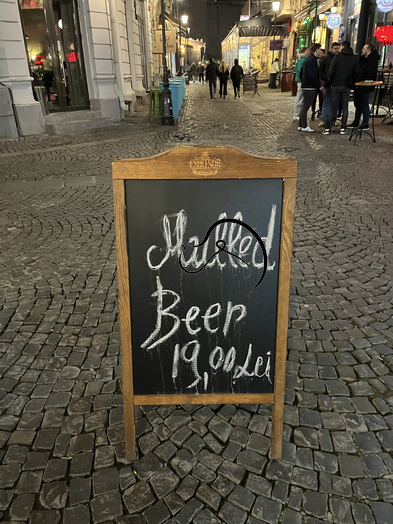 Mulled
Beer
19,00 Lei